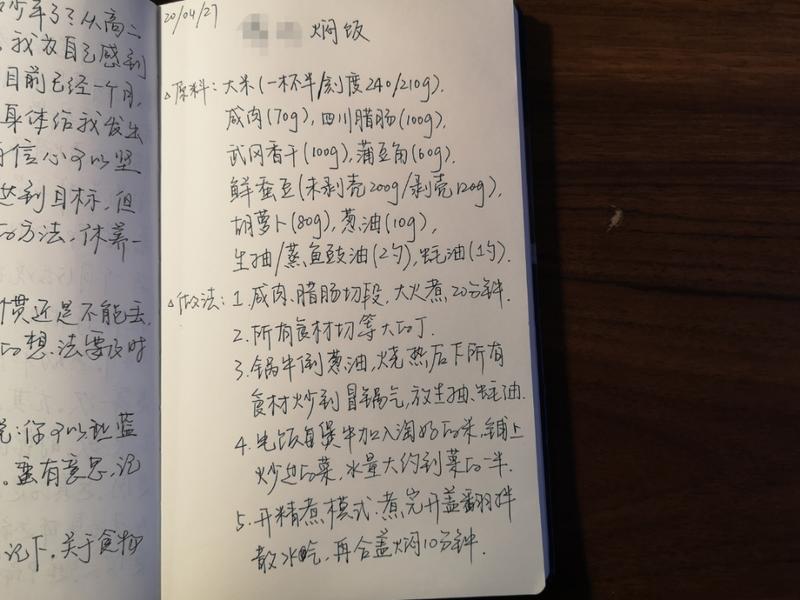 少年了？从高二
我放自己感到
目前已经一个月,
身体给我发出
信心可以坚
达到目标,但
的方法,休养一
惯还是不能丢,
的想法要及时
你可以
蛮有意思,记
记下,关于食物
20/04/27
焖饭
△原料:大米(一杯半/刻度240/210g).
咸肉(70g),四川腊肠(100g),
武冈香干(100g),蒲豆角(60g).
鲜蚕豆(未剥壳200g/剥壳120g),
胡萝卜(80g),葱油(10g),
生抽/蒸鱼豉油(2勺),蚝油(1勺).
△做法:1.咸肉、腊肠切段,大火煮20分钟.
2.所有食材切等大的丁.
3.锅中倒葱油,烧热后下所有
食材炒到冒锅气,放生抽、蚝油.
4.电饭煲中加入淘好的米,铺上
炒过的菜,水量大约到菜的一半.
5.开精煮模式.煮完开盖翻拌
散水吃,再合盖焖10分钟.